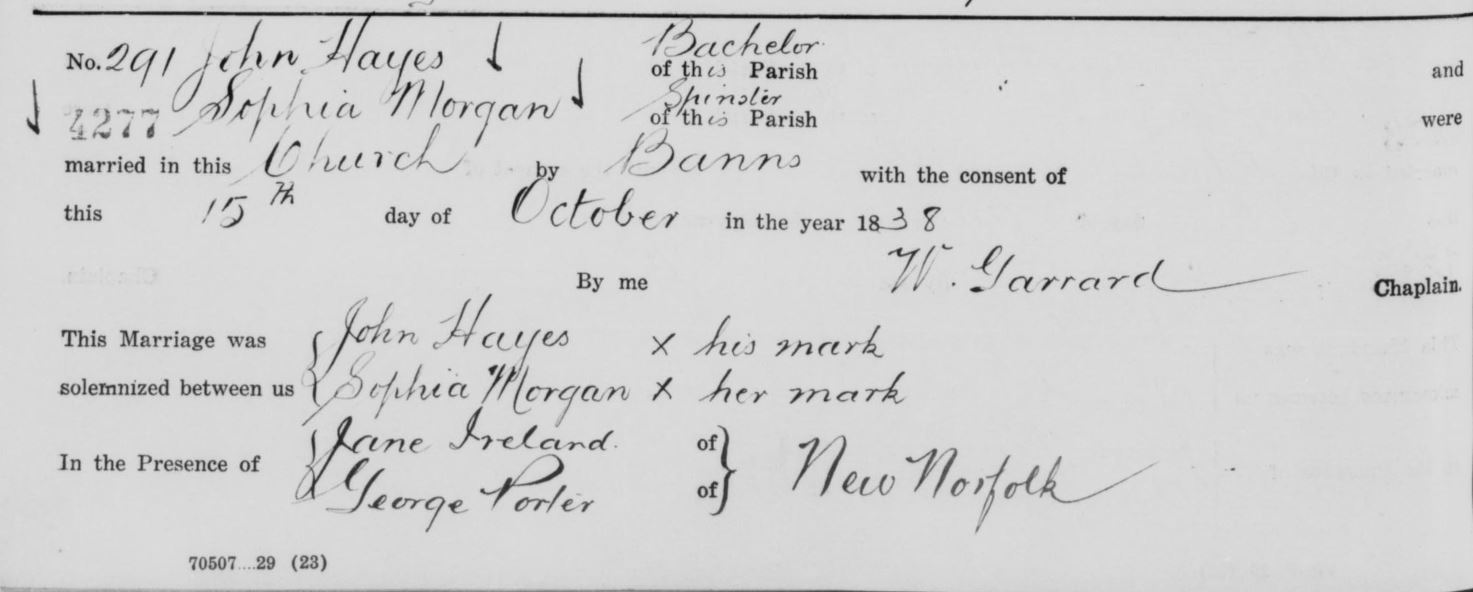 No. 291 John Hayes Bachelor of this Parish and
4277 Sophia Morgan Spinster of this Parish were
married in this Church by Banns with the consent of
this 15th day of October in the year 1838
By me W. Garrard Chaplain.
This Marriage was John Hayes x his mark
solemnized between us Sophia Morgan x her mark
In the Presence of Jane Ireland. of
George Porter of New Norfolk
70507....29 (23)